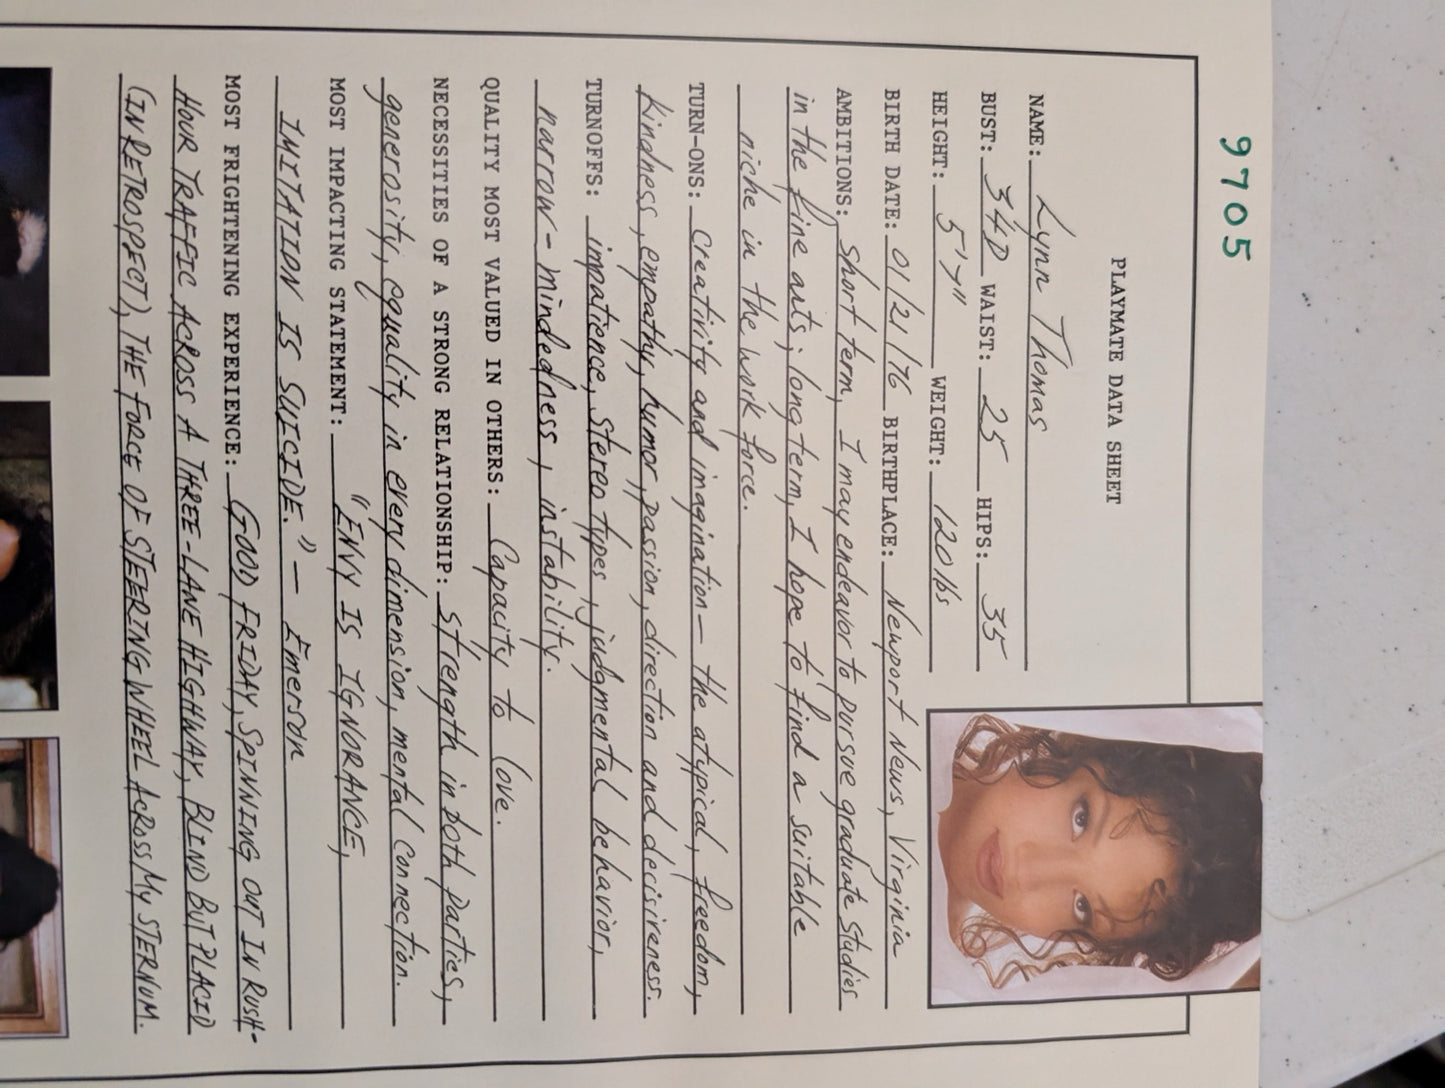 9705
PLAYMATE DATA SHEET
NAME: Lynn Thomas
BUST: 34D WAIST: 25 HIPS: 35
HEIGHT: 5'7" WEIGHT: 120 lbs
BIRTH DATE: 01/21/76 BIRTHPLACE: Newport News, Virginia
AMBITIONS: Short term, I may endeavor to pursue graduate studies
in the fine arts; long term, I hope to find a suitable
niche in the work force.
TURN-ONS: Creativity and imagination — the atypical, freedom,
kindness, empathy, humor, passion, direction and decisiveness.
TURNOFFS: impatience, stereotypes, judgmental behavior,
narrow-mindedness, instability.
QUALITY MOST VALUED IN OTHERS: Capacity to love.
NECESSITIES OF A STRONG RELATIONSHIP: Strength in both parties,
generosity, equality in every dimension, mental connection.
MOST IMPACTING STATEMENT: "ENVY IS IGNORANCE,
IMITATION IS SUICIDE." — Emerson
MOST FRIGHTENING EXPERIENCE: GOOD FRIDAY, SPINNING OUT IN RUSH-
HOUR TRAFFIC ACROSS A THREE-LANE HIGHWAY, BLIND BUT PLACID
(IN RETROSPECT), THE FORCE OF STEERING WHEEL ACROSS MY STERNUM.